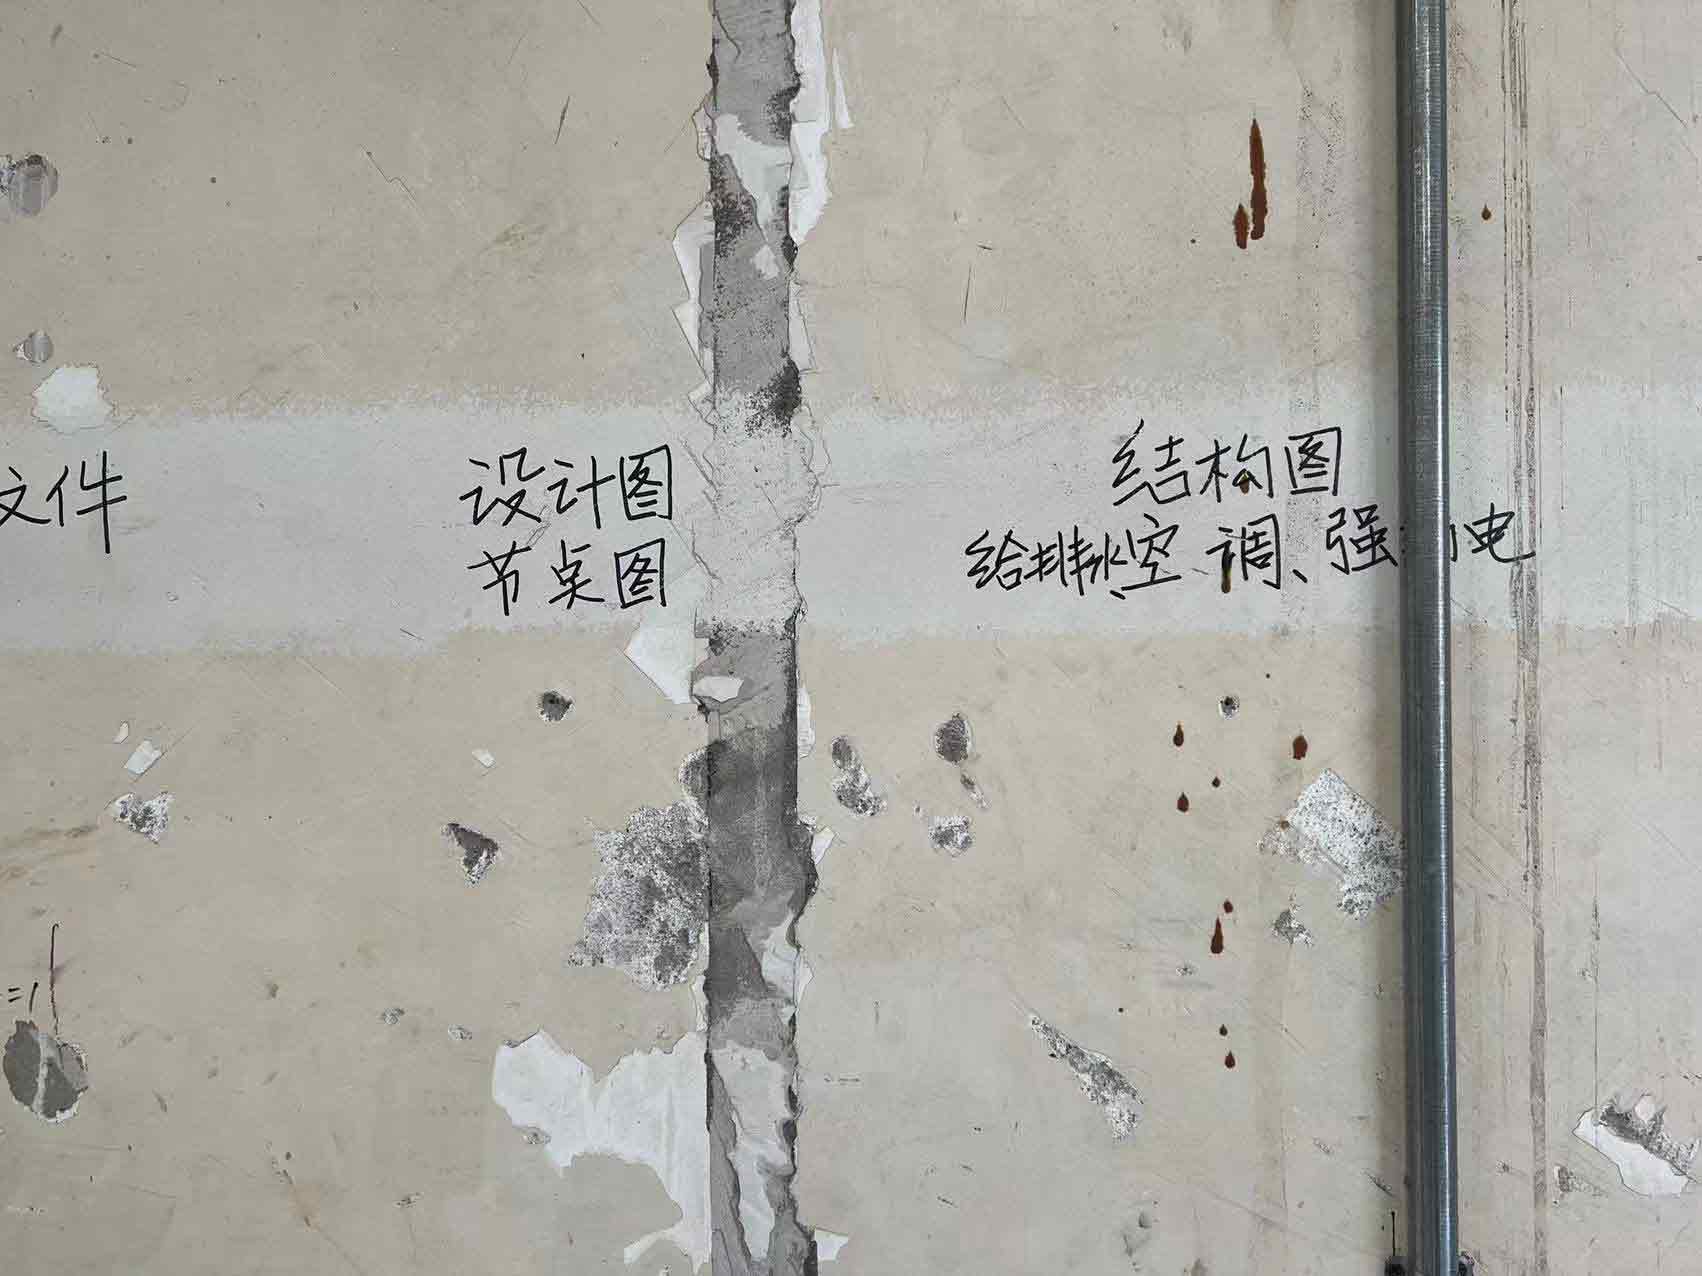 文件
设计图
节点图
结构图
给排水、空调、强 电
=1